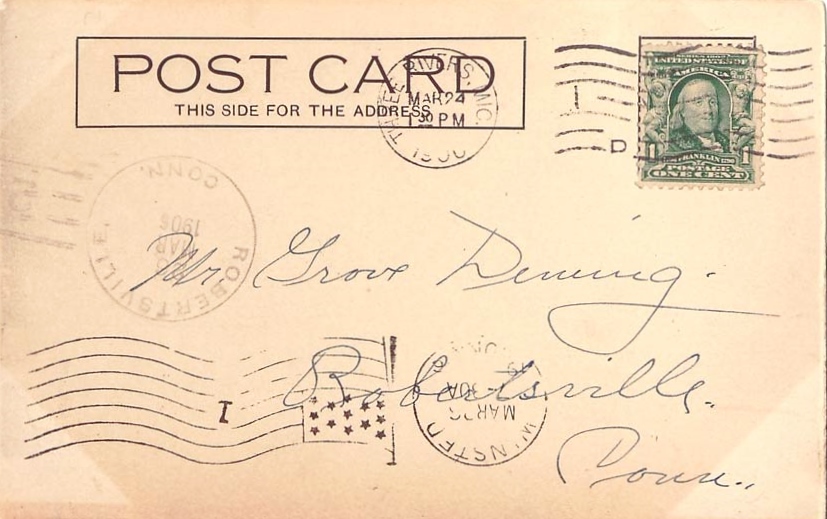 POST CARD
THIS SIDE FOR THE ADDRESS
THREE RIVERS, MIC.
MAR 24
1 30 PM
1906
D
SERIES 1902
UNITED STATES OF
AMERICA
FRANKLIN
1 1
POSTAGE
ONE CENT
ROBERTSVILLE, CONN.
MAR
1906
Mr Grove Deming.
Robertsville.
Conn.,
I
WINSTED
CONN.
MAR
30 A